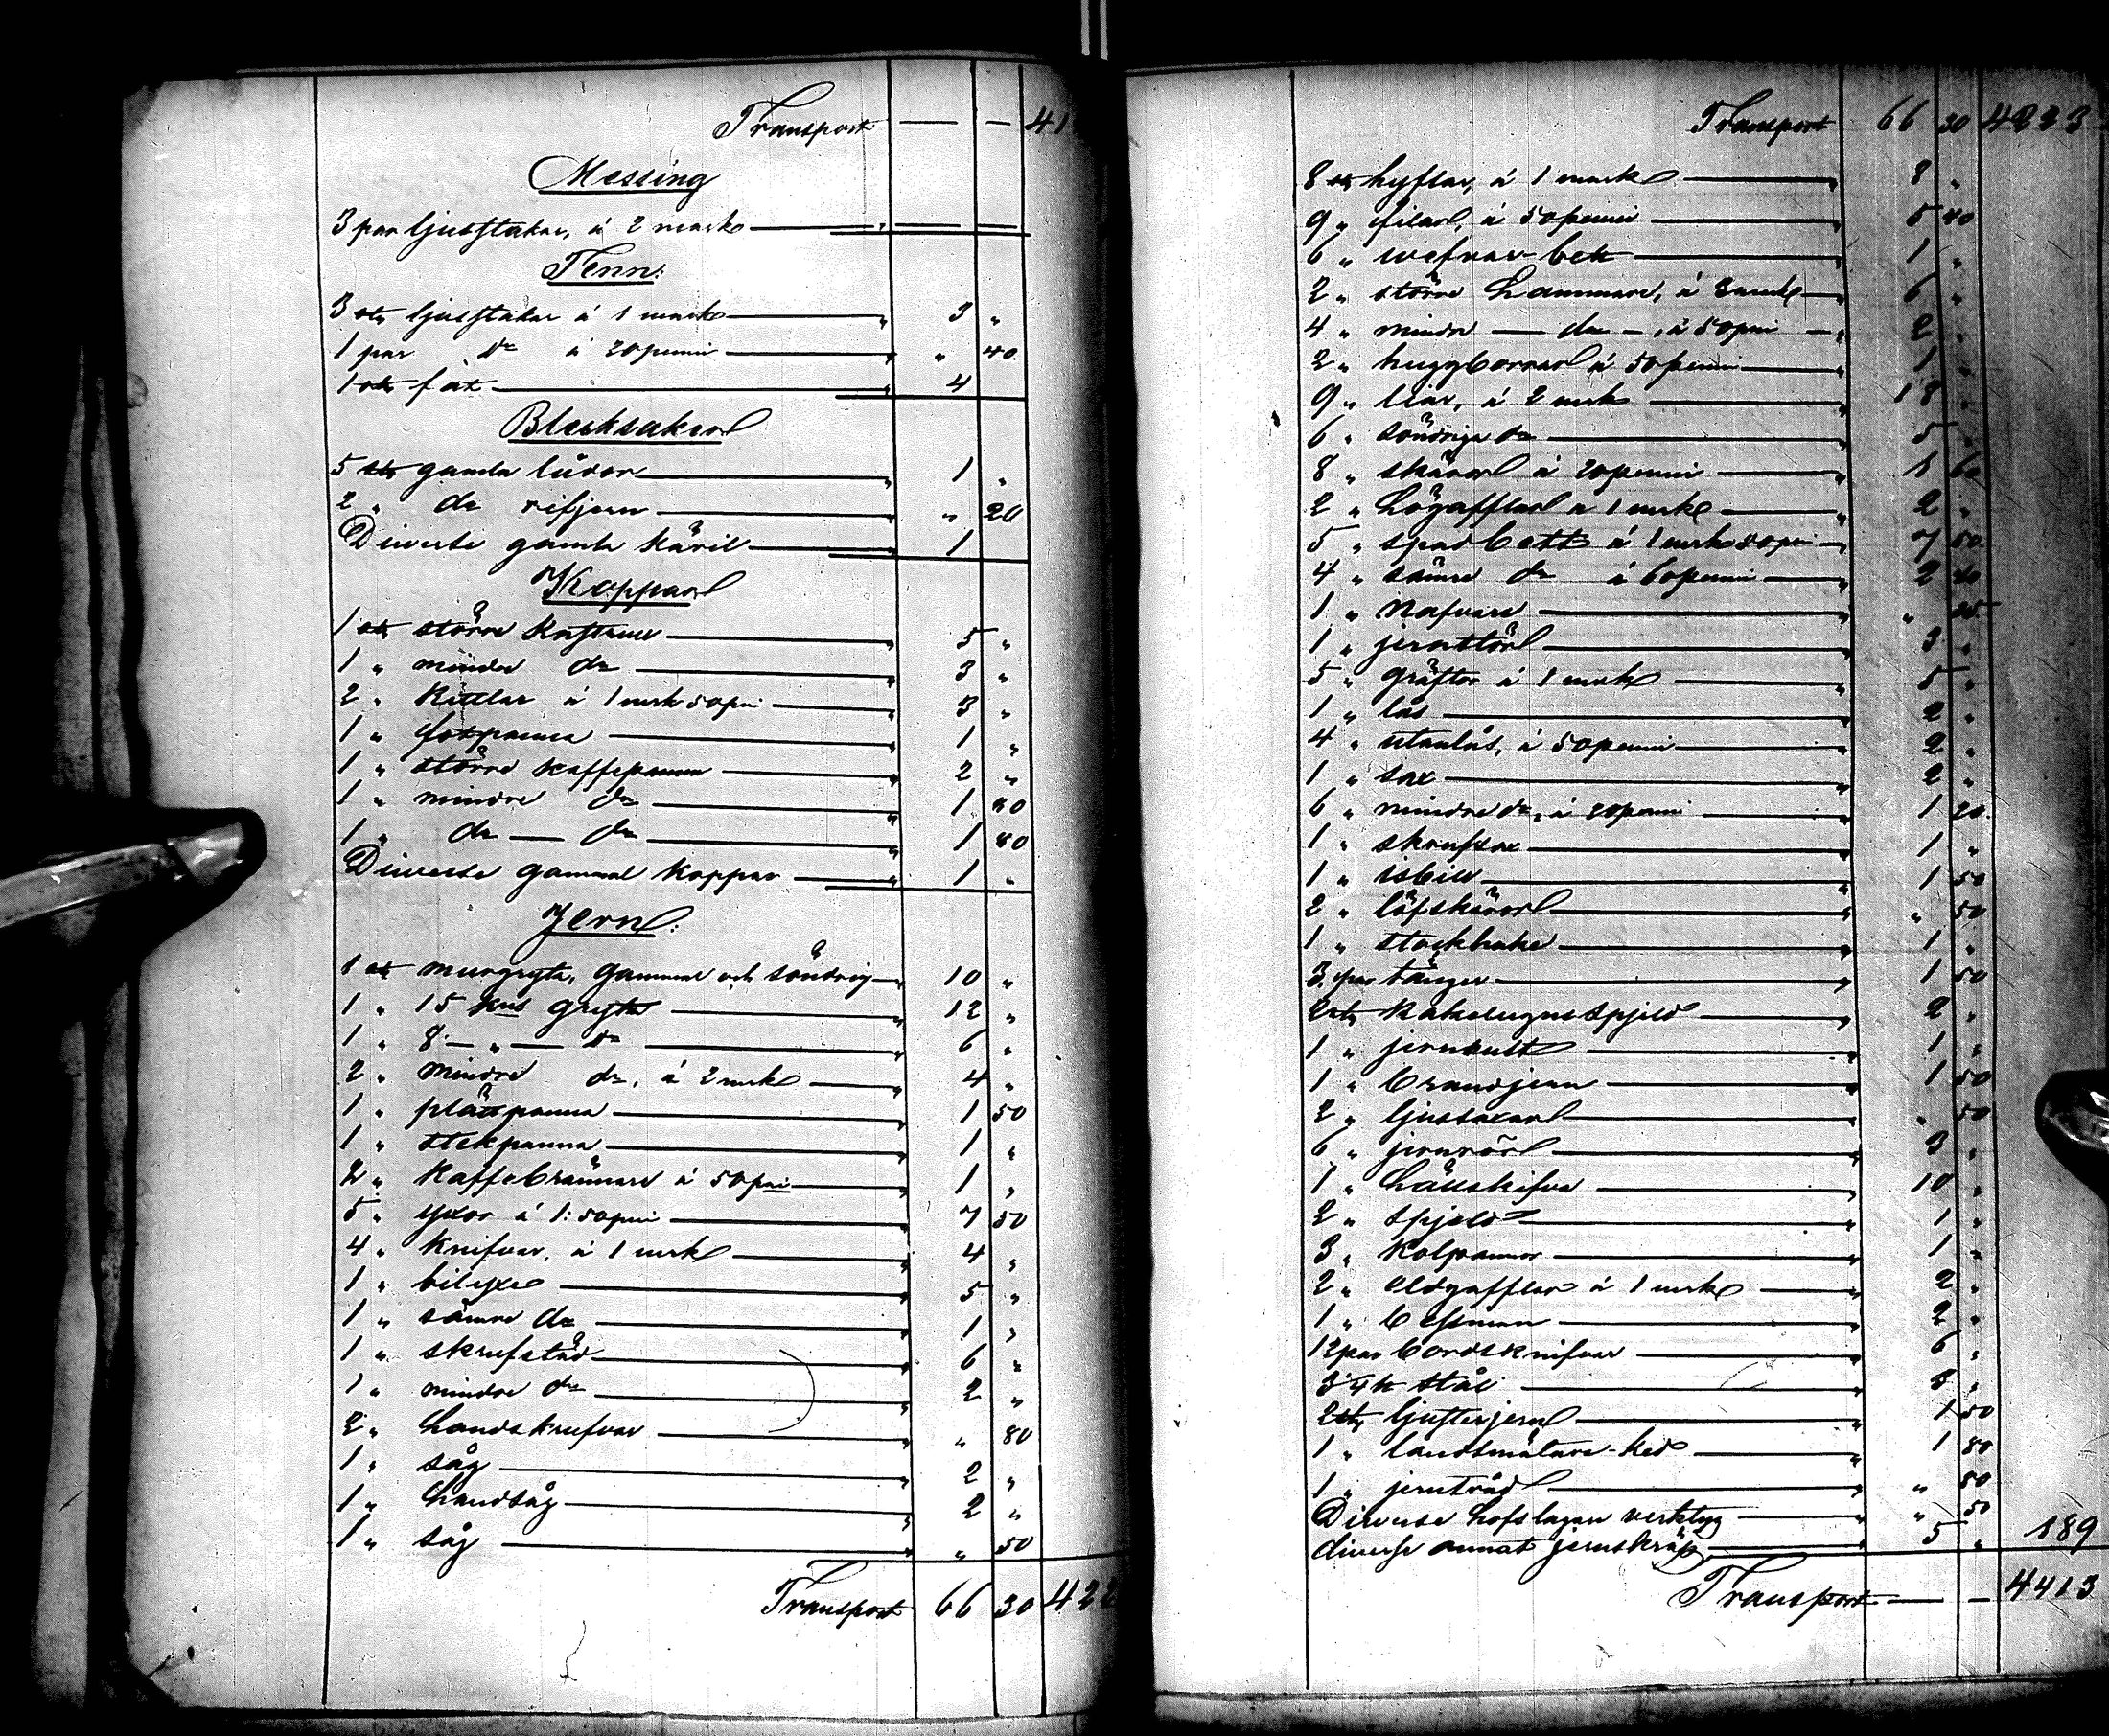 Transport — — 41
Messing
3 par ljusstakar, á 2 mark " — —
Tenn:
3 st. ljusstakar á 1 mark " 3 "
1 par do á 20 penni " " 40
1 st. fat " 4
Blecksaker
5 st. gamla lådor " 1 "
2 " do rifjern " " 20
Diverse gamla käril " 1
Koppar
1 st. större Kastrull " 5 "
1 " mindre do " 3 "
2 " Kittlar á 1 mrk 50 pni " 3 "
1 " fotpanna " 1 "
1 " större kaffepanna " 2 "
1 " mindre do " 1 80
1 " do — do " 1 80
Diverse gammal koppar " 1 "
Jern:
1 st murgryta, gammal och söndrig " 10 "
1 " 15 kns gryta " 12 "
1 " 8 — " — do " 6 "
2 " mindre do, á 2 mrk " 4 "
1 " plättpanna " 1 50
1 " stekpanna " 1 "
2 " Kaffebrännare á 50 pni " 1 "
5 " yxor á 1:50 pni " 7 50
4 " Knifvar, á 1 mrk " 4 "
1 " bilyxe " 5 "
1 " sämre do " 1 "
1 " skrufstäd " 6 "
1 " mindre do " 2 "
2 " handskrufvar " " 80
1 " såg " 2 "
1 " handsåg " 2 "
1 " såg " " 50
Transport 66 30 422
Transport 66 30 4223
8 st. hyflar, á 1 mark " 8 "
9 " filar, á 50 penni " 5 40
6 " " 1 "
2 " större hammare, á 3 mrk " 6 "
4 " mindre — do —, á 50 pni " 2 "
2 " huggborrar á 50 penni " 1 "
9 " liar, á 2 mrk " 18 "
6 " söndriga do " 5 "
8 " skäror á 20 penni " 1 60
2 " högafflar á 1 mrk " 2 "
5 " spadbett á 1 mrk 50 pni " 7 50
4 " sämre do á 60 penni " 2 40
1 " Nafvare " " 25
1 " jernstör " 3 "
5 " gräftor á 1 mrk " 5 "
1 " lås " 2 "
4 " utanlås, á 50 penni " 2 "
1 " sax " 2 "
6 " mindre do, á 20 penni " 1 20
1 " skrufsax " 1 "
1 " isbill " 1 50
2 " löfskäror " " 50
1 " stockhake " 1 "
3 par tänger " 1 50
2 st. kakelugnsspjeld " 2 "
1 " " 1 "
1 " brandjern " 1 50
2 " ljussaxar " " 50
6 " jernrör " 3 "
1 " hällskifva " 10 "
2 " spjeld " 1 "
3 " kolpannor " 1 "
2 " eldgafflar á 1 mrk " 2 "
1 " besman " 2 "
12 par bordsknifvar " 6 "
stål "
2 st. ljusterjern " 1 50
1 " landtmätare-ked " 1 80
1 " jerntråd " " 80
Diverse hofslagare verktyg " " 50
diverse annat jernskräp " 5 " 189
Transport — — 4413